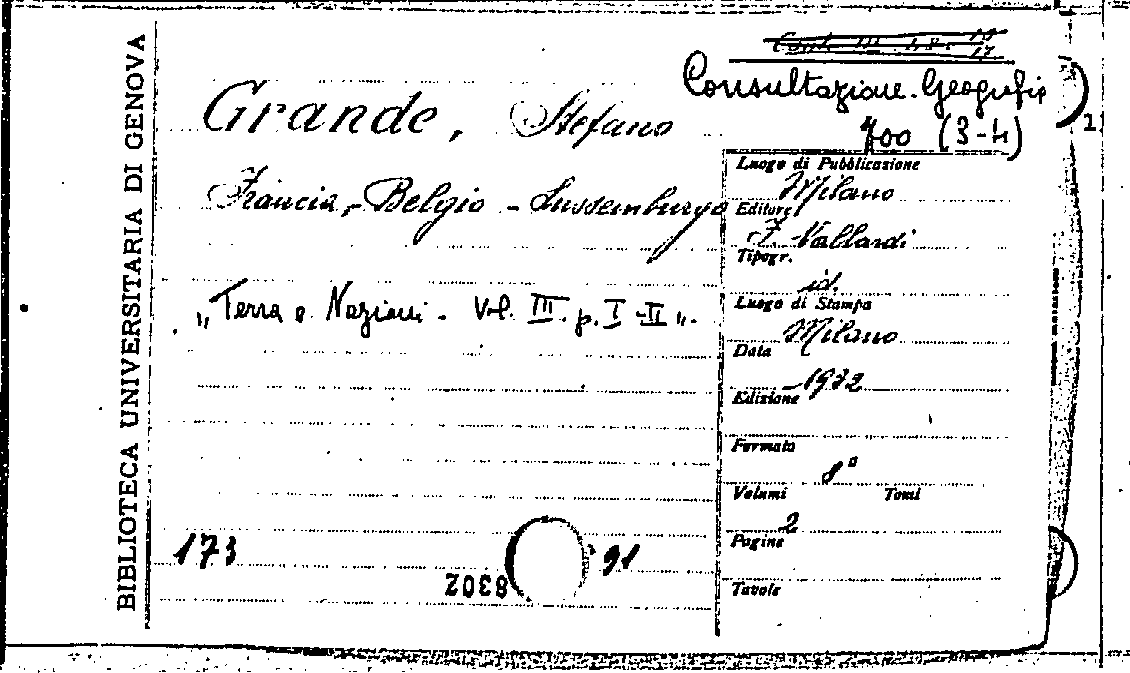 BIBLIOTECA UNIVERSITARIA DI GENOVA
Consultazione Geografia
400 (3-4)
Grande, Stefano
Francia, - Belgio - Lussemburgo
„Terra e Nazioni - Vol. III. p. I-II".
173
91
8302
Luogo di Pubblicazione
Milano
Editore
F. Vallardi
Tipogr.
id.
Luogo di Stampa
Milano
Data
1932
Edizione
Formato
8°
Volumi Tomi
2
Pagine
Tavole